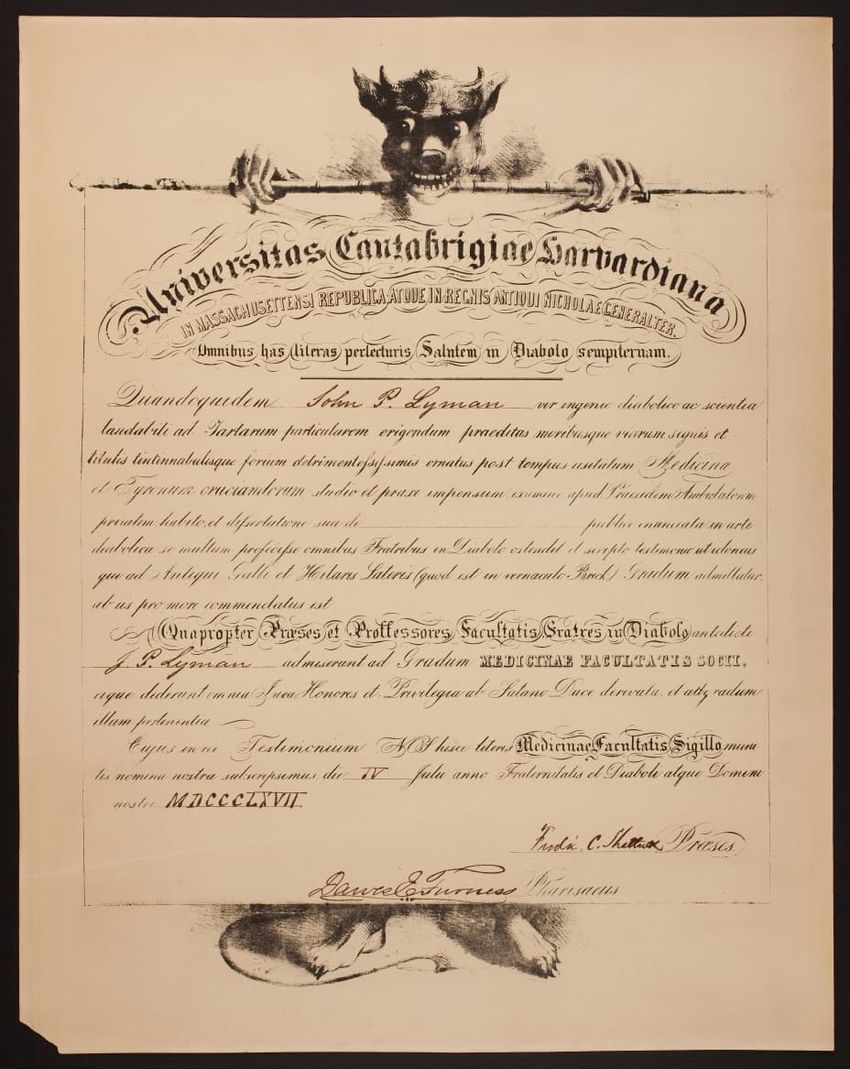 Universitas Cantabrigiae Harvardiana
IN MASSACHUSETTENSI REPUBLICA ATQUE IN REGNIS ANTIQUI NICHOLAE GENERALTER.
Omnibus has literas perlecturis Salutem in Diabolo sempiternam.
Quandoquidem John P. Lyman vir ingenio diabolico ac scientia
laudabili ad Tartarum particularem erigendum praeditus moribusque virorum signis et
titulis tintinnabulisque forium detrimentosissimis ornatus post tempus usitatum Medicina
et Tyronum cruciandorum studio et praxi impensum examine apud Praesidem Ambulatorum
privatim habito, et dissertatione sua de publice enunciata, in arte
diabolica se multum profecisse omnibus Fratribus in Diabolo ostendit et scripto testimonio ut idoneus
que ad Antiqui Galli et Hilaris Lateris (quod est in vernaculo Brick) Gradum admittatur,
ab iis pro more commendatus est
Quapropter Præses et Proffessores Facultatis Fratres in Diabolo antedicto
J. P. Lyman admiserunt ad Gradum MEDICINAE FACULTATIS SOCII.
eique dederunt omnia Jura Honores et Privilegia ab Satano Duce derivata, et ad gradum
illum pertinentia
Cujus in rei Testimonium hisce literis Medicinae Facultatis Sigillo muni
tis nomina nostra subscripsimus die IV Julii anno Fraternitatis et Diaboli atque Domini
nostri MDCCCLXVII
Fredk. C. Shattuck Præses
Dawes E. Furness Pharisaeus